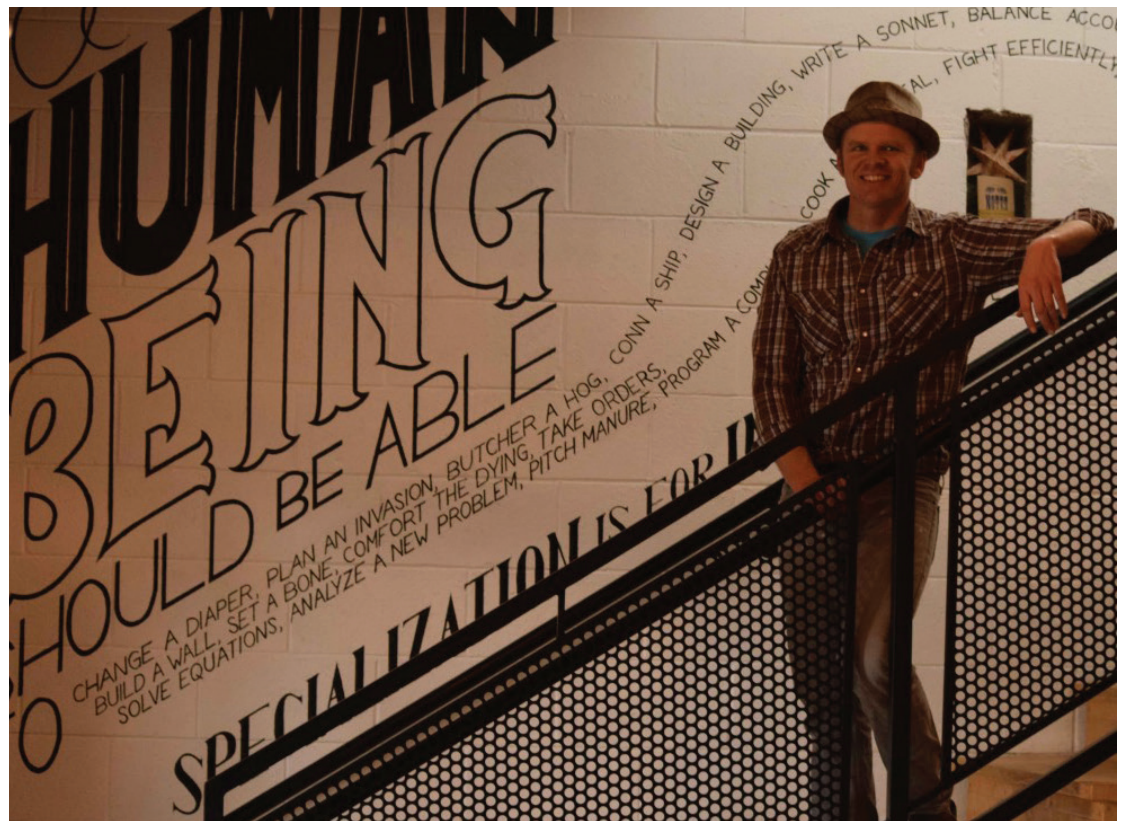 a
HUMAN
BEING
SHOULD BE ABLE
TO
CHANGE A DIAPER, PLAN AN INVASION, BUTCHER A HOG, CONN A SHIP, DESIGN A BUILDING, WRITE A SONNET, BALANCE ACCOU
BUILD A WALL, SET A BONE, COMFORT THE DYING, TAKE ORDERS,
SOLVE EQUATIONS, ANALYZE A NEW PROBLEM, PITCH MANURE, PROGRAM A COMP
COOK A
AL, FIGHT EFFICIENTLY,
SPECIALIZATION IS FOR IN